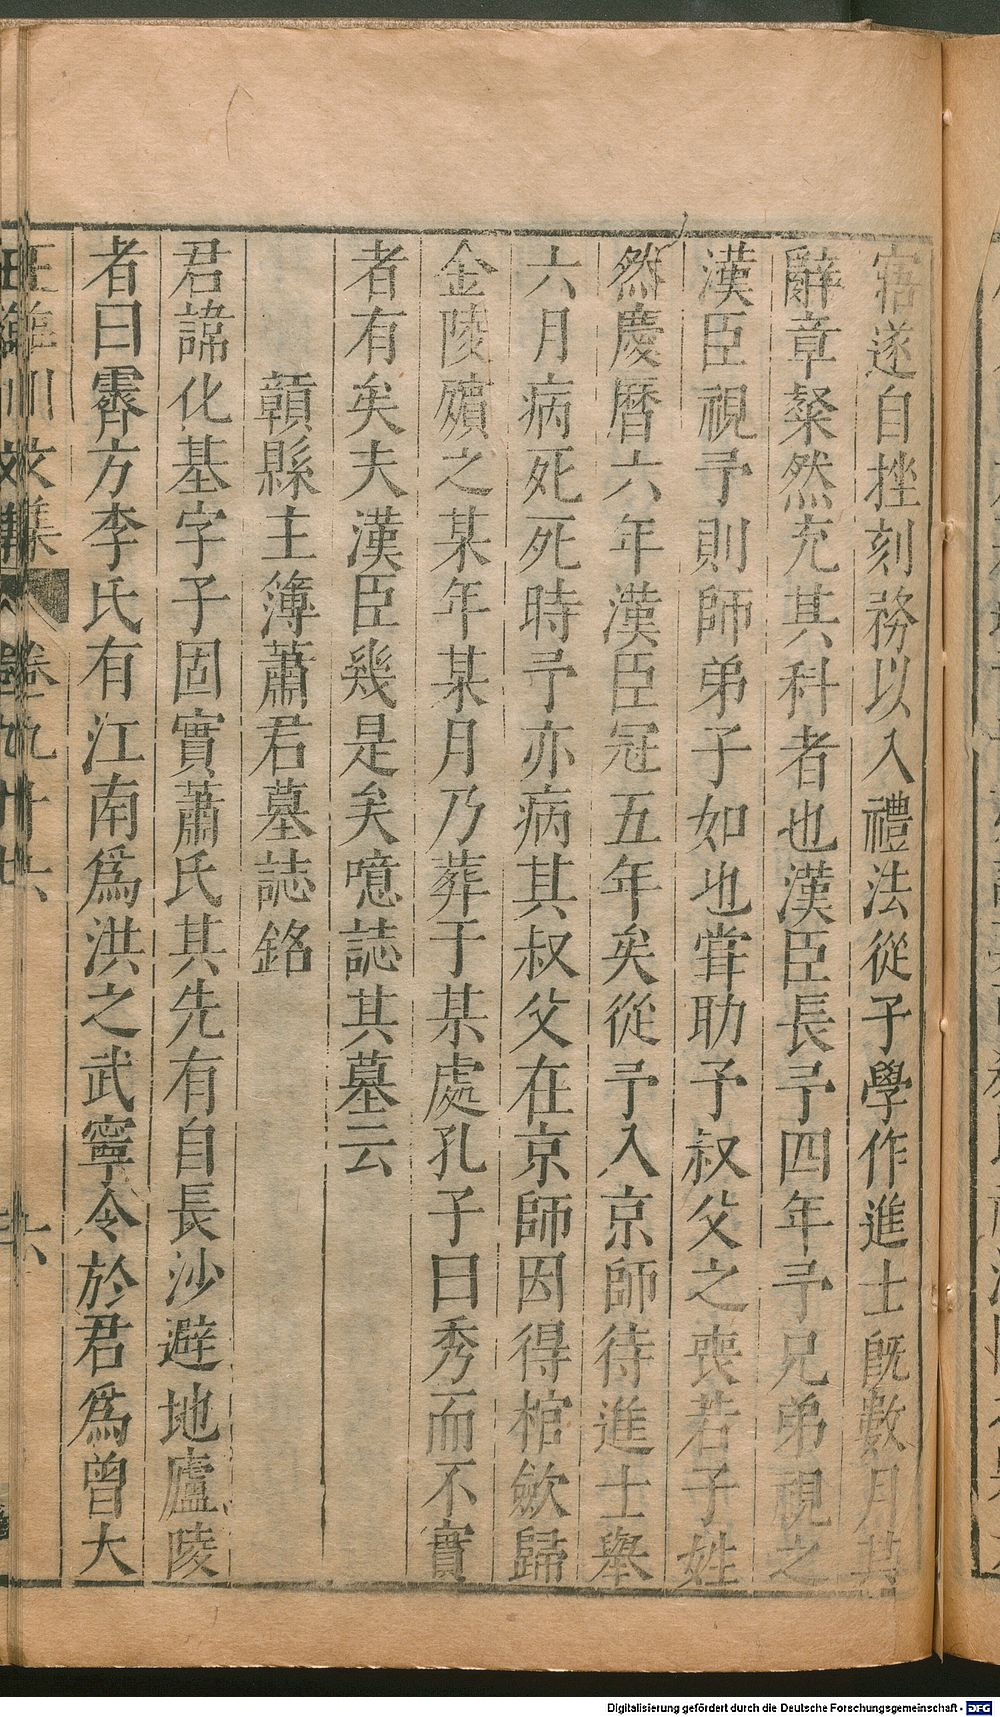 寤遂自挫刻務以入禮法從予學作進士旣數月其
辭章粲然充其科者也漢臣長予四年予兄弟視之
漢臣視予則師弟子如也甞助予叔父之喪若子姓
然慶曆六年漢臣冠五年矣從予入京師待進士舉
六月病死死時予亦病其叔父在京師因得棺斂歸
金陵殯之某年某月乃葬于某處孔子曰秀而不實
者有矣夫漢臣幾是矣噫誌其墓云
贑縣主簿蕭君墓誌銘
君諱化基字子固實蕭氏其先有自長沙避地廬陵
者曰霽方李氏有江南爲洪之武寧令於君爲曾大
王臨川文集 卷九十六 六
Digitalisierung gefördert durch die Deutsche Forschungsgemeinschaft - DFG